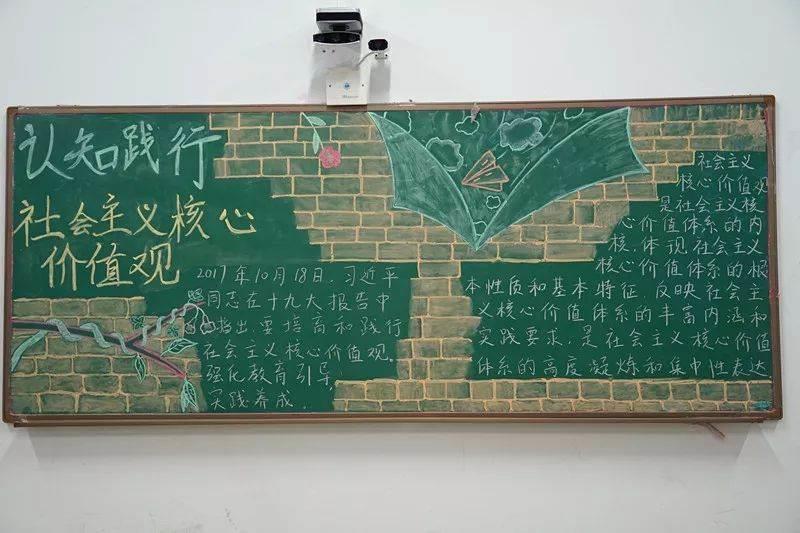 认知践行
社会主义核心
价值观
2017年10月18日，习近平
同志在十九大报告中
指出，要培育和践行
社会主义核心价值观，
强化教育引导，
实践养成。
社会主义
核心价值观
是社会主义核
心价值体系的内
核，体现社会主义
核心价值体系的根
本性质和基本特征，反映社会主
义核心价值体系的丰富内涵和
实践要求，是社会主义核心价值
体系的高度凝炼和集中性表达